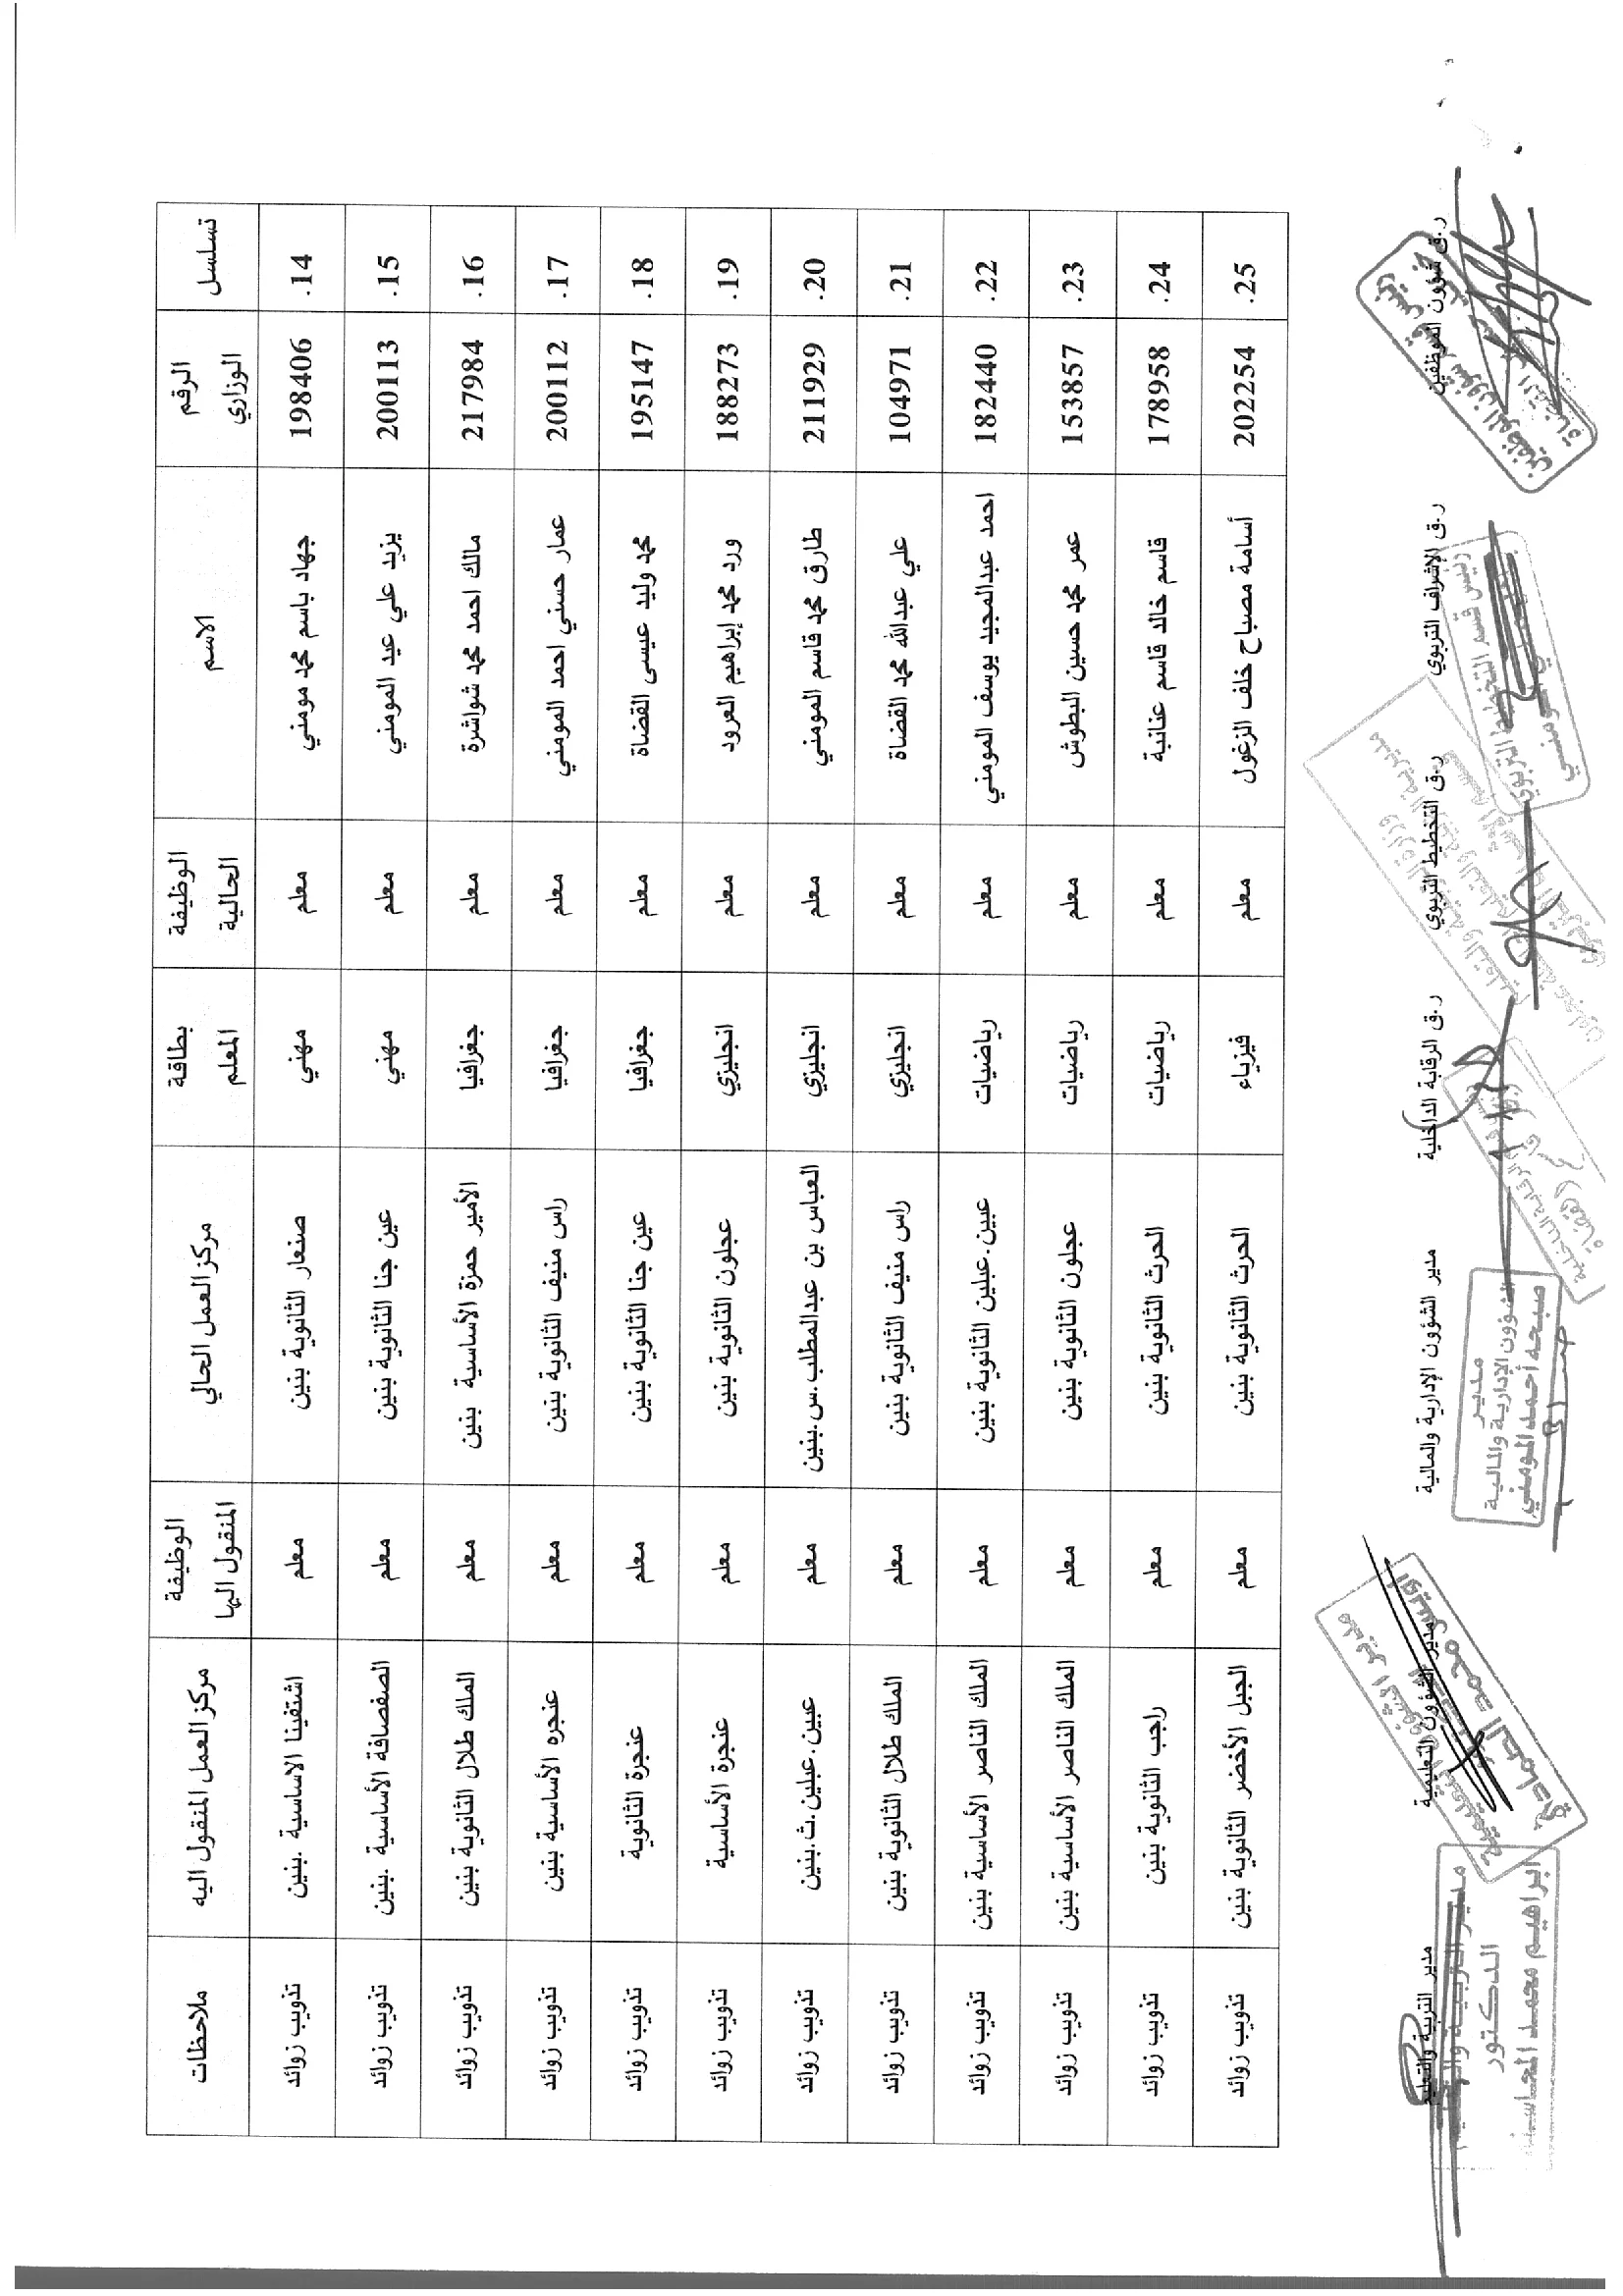 تسلسل الرقم الوزاري الاسم الوظيفة الحالية بطاقة المعلم مركز العمل الحالي الوظيفة المنقول اليها مركز العمل المنقول اليه ملاحظات
14. 198406 جهاد باسم محمد مومني معلم مهني صنعار الثانوية بنين معلم اشتفينا الاساسية .بنين تذويب زوائد
15. 200113 يزيد علي عيد المومني معلم مهني عين جنا الثانوية بنين معلم الصفصافة الأساسية .بنين تذويب زوائد
16. 217984 مالك احمد محمد شواشرة معلم جغرافيا الأمير حمزة الأساسية بنين معلم الملك طلال الثانوية بنين تذويب زوائد
17. 200112 عمار حسني احمد المومني معلم جغرافيا راس منيف الثانوية بنين معلم عنجره الأساسية بنين تذويب زوائد
18. 195147 محمد وليد عيسى القضاة معلم جغرافيا عين جنا الثانوية بنين معلم عنجرة الثانوية تذويب زوائد
19. 188273 ورد محمد إبراهيم العرود معلم انجليزي عجلون الثانوية بنين معلم عنجرة الأساسية تذويب زوائد
20. 211929 طارق محمد قاسم المومني معلم انجليزي العباس بن عبدالمطلب.س.بنين معلم عبين.عبلين.ث.بنين تذويب زوائد
21. 104971 علي عبدالله محمد القضاة معلم انجليزي راس منيف الثانوية بنين معلم الملك طلال الثانوية بنين تذويب زوائد
22. 182440 احمد عبدالمجيد يوسف المومني معلم رياضيات عبين.عبلين الثانوية بنين معلم الملك الناصر الأساسية بنين تذويب زوائد
23. 153857 عمر محمد حسين البطوش معلم رياضيات عجلون الثانوية بنين معلم الملك الناصر الأساسية بنين تذويب زوائد
24. 178958 قاسم خالد قاسم عنانبة معلم رياضيات الحرث الثانوية بنين معلم راجب الثانوية بنين تذويب زوائد
25. 202254 أسامة مصباح خلف الزغول معلم فيزياء الحرث الثانوية بنين معلم الجبل الأخضر الثانوية بنين تذويب زوائد
ر.ق شؤون الموظفين ر.ق الإشراف التربوي ر.ق التخطيط التربوي ر.ق الرقابة الداخلية مدير الشؤون الإدارية والمالية مدير الشؤون التعليمية مدير التربية والتعليم
رئيس قسم التخطيط التربوي
مدير
الشؤون الإدارية والمالية
صبحه أحمد المومني
الدكتور
ابراهيم محمد